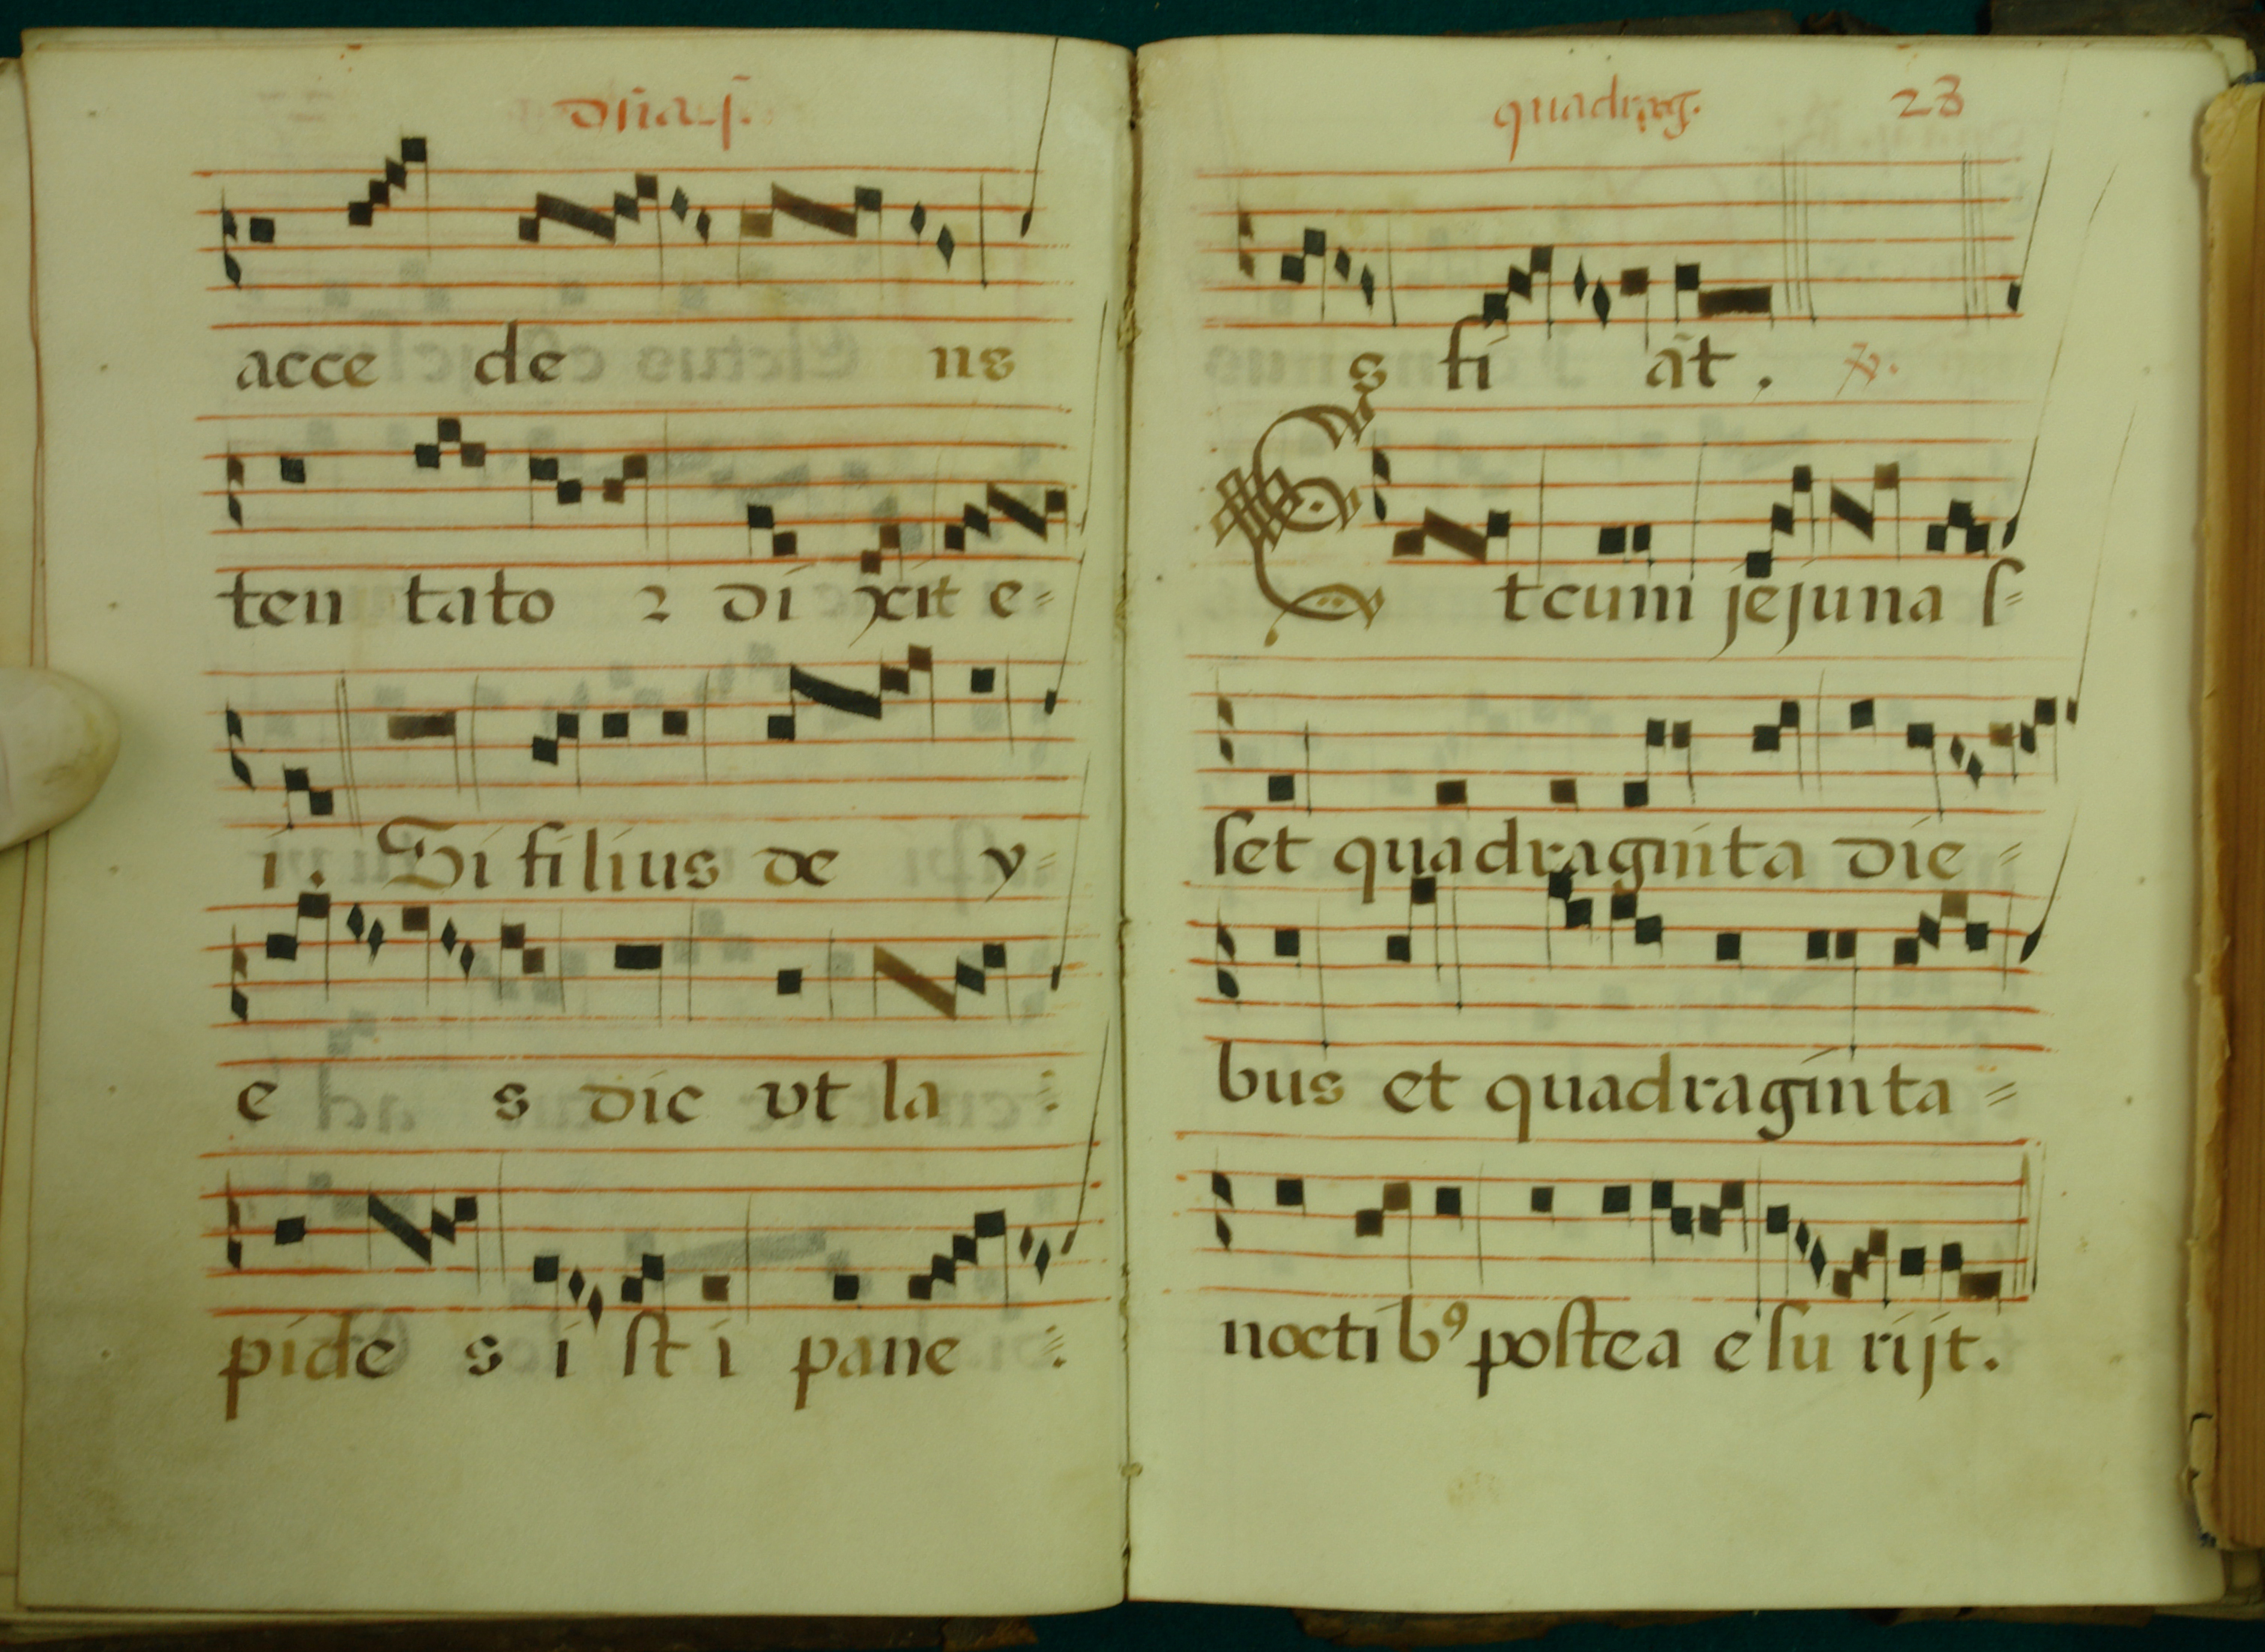 dn̄a. j.
acce de ns
ten tato ⁊ di xit e=
i. Si filius de y=
e s dic vt la :
pide s i ſt i pane :
quadrag. 23
s fi āt. ℣.
Et cum jejuna ſ=
ſet quadraginta die=
bus et quadraginta=
nocti bꝰ poſtea e ſu rijt.